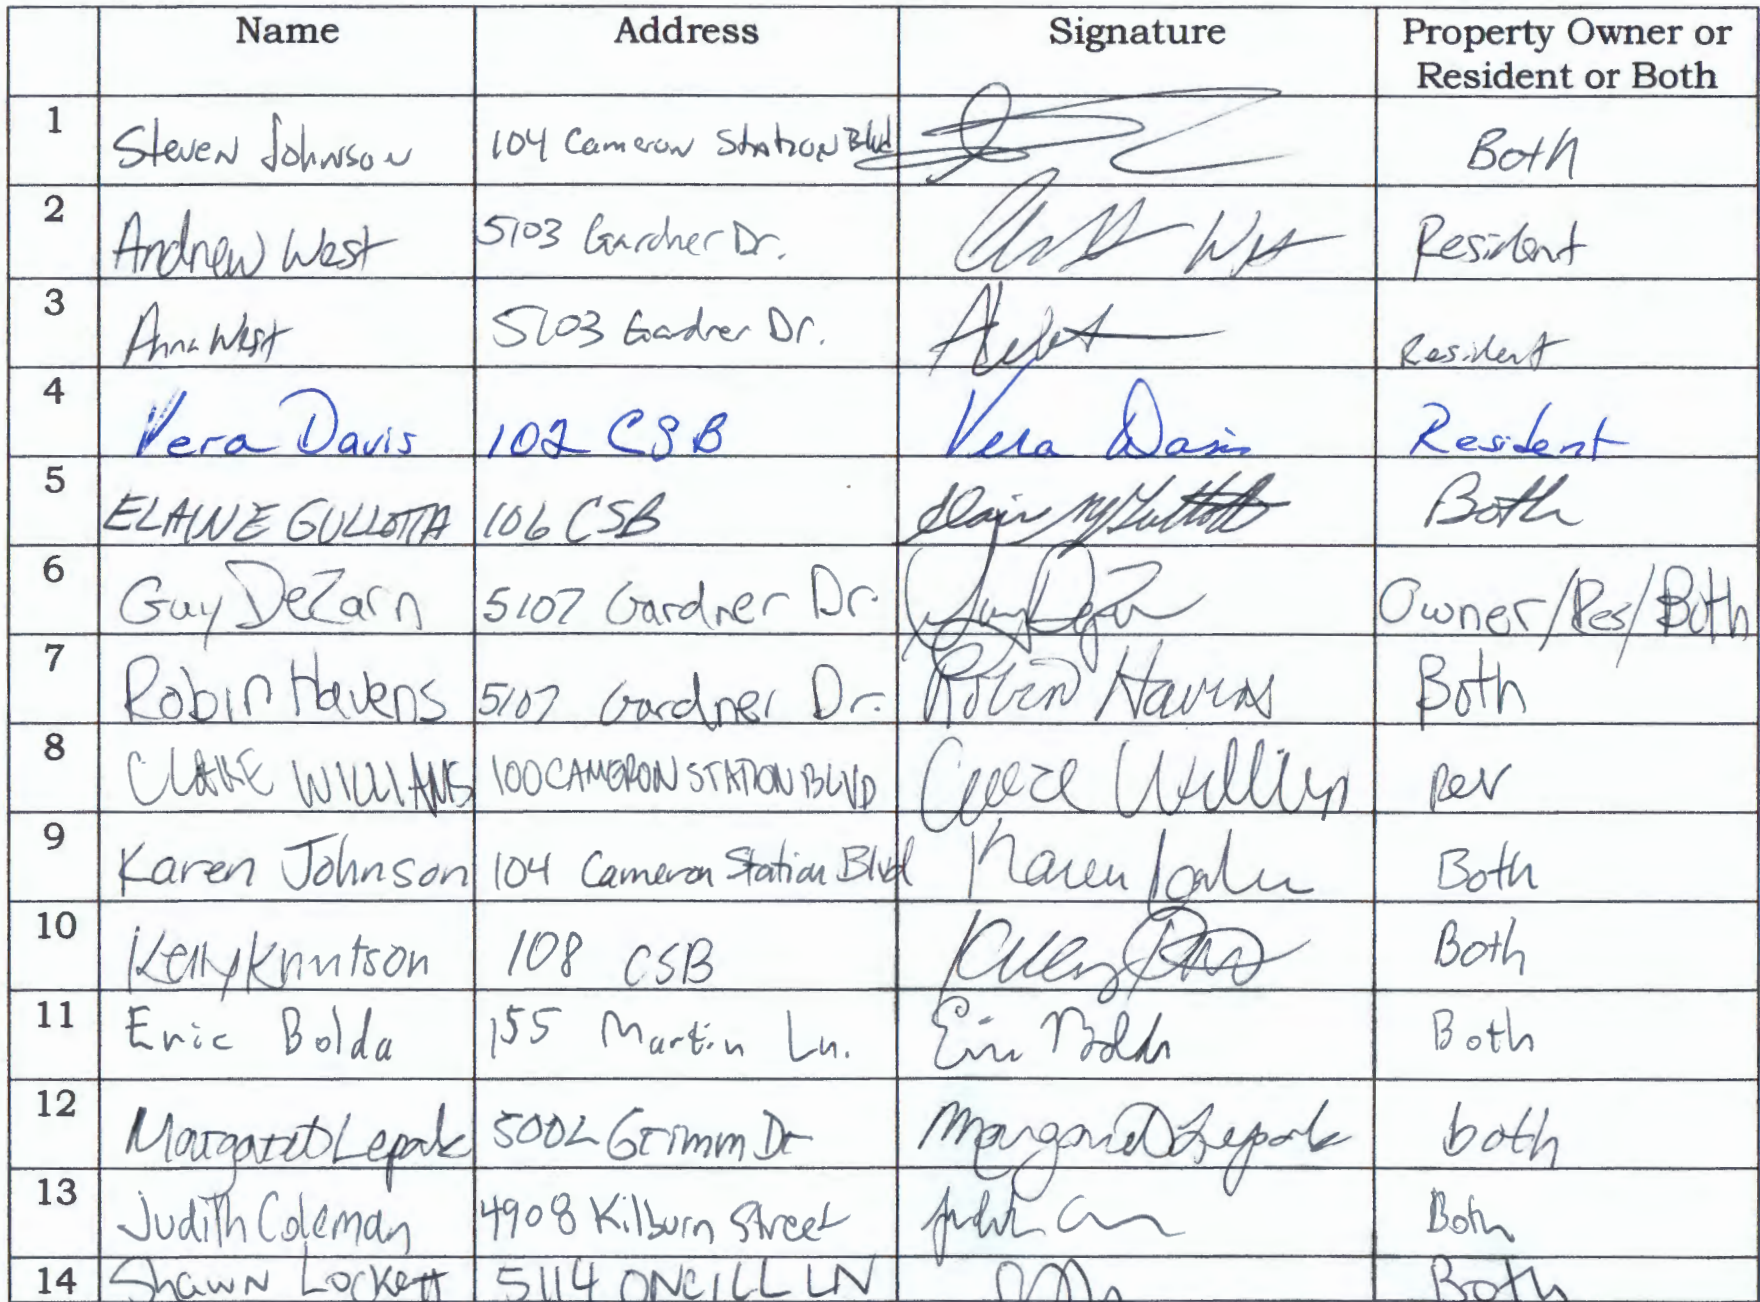 Name Address Signature Property Owner or
Resident or Both
1 Steven Johnson 104 Cameron Station Blvd Both
2 Andrew West 5103 Gardner Dr. West Resident
3 Anna West 5103 Gardner Dr. Resident
4 Vera Davis 102 CSB Vera Davis Resident
5 ELAINE GULLOTTA 106 CSB Both
6 Guy DeZarn 5107 Gardner Dr. Guy DeZarn Owner/Res/Both
7 Robin Havens 5107 Gardner Dr. Robin Havens Both
8 WILLIAMS 100 CAMERON STATION BLVD
9 Karen Johnson 104 Cameron Station Blvd Karen Both
10 Kelly Knutson 108 CSB Both
11 Eric Bolda 155 Martin Ln. Eric Bolda Both
12 Margaret Lepak 5002 Grimm Dr Margaret Lepak both
13 Judith Coleman 4908 Kilburn Street Both
14 Shawn Lockett 5114 ONEILL LN Both